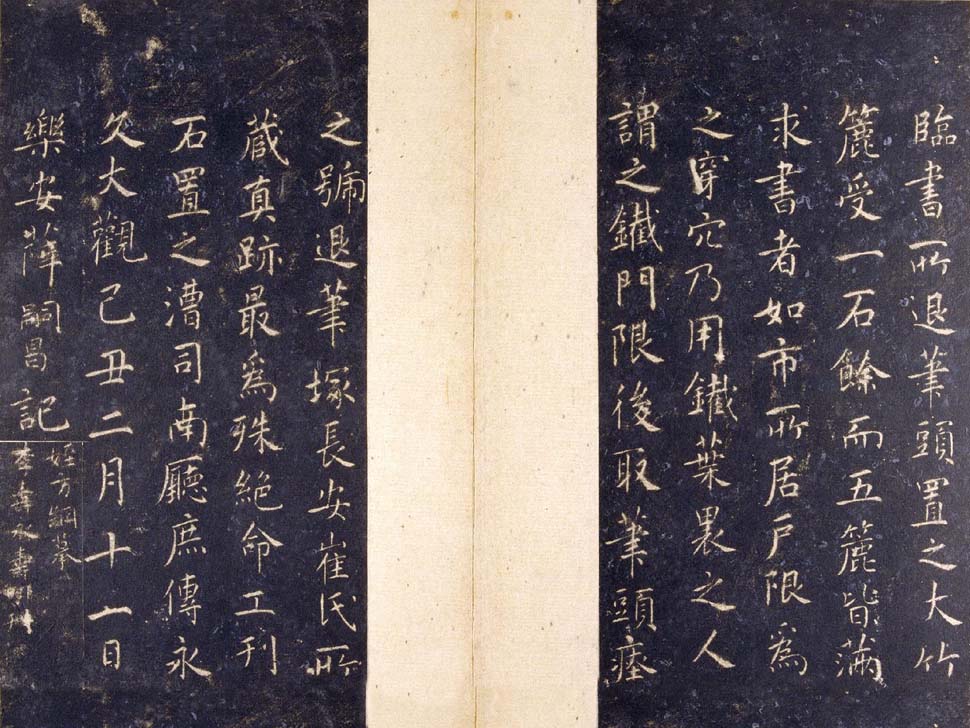 臨書所退筆頭置之大竹
簏受一石餘而五簏皆滿
求書者如市所居戶限為
之穿穴乃用鐵葉裹之人
謂之鐵門限後取筆頭瘞
之號退筆塚長安崔氏所
藏真跡最為殊絕命工刊
石置之漕司南廳庶傳永
久大觀己丑二月十一日
樂安薛嗣昌記
姪方綱摹
李壽永壽明刊